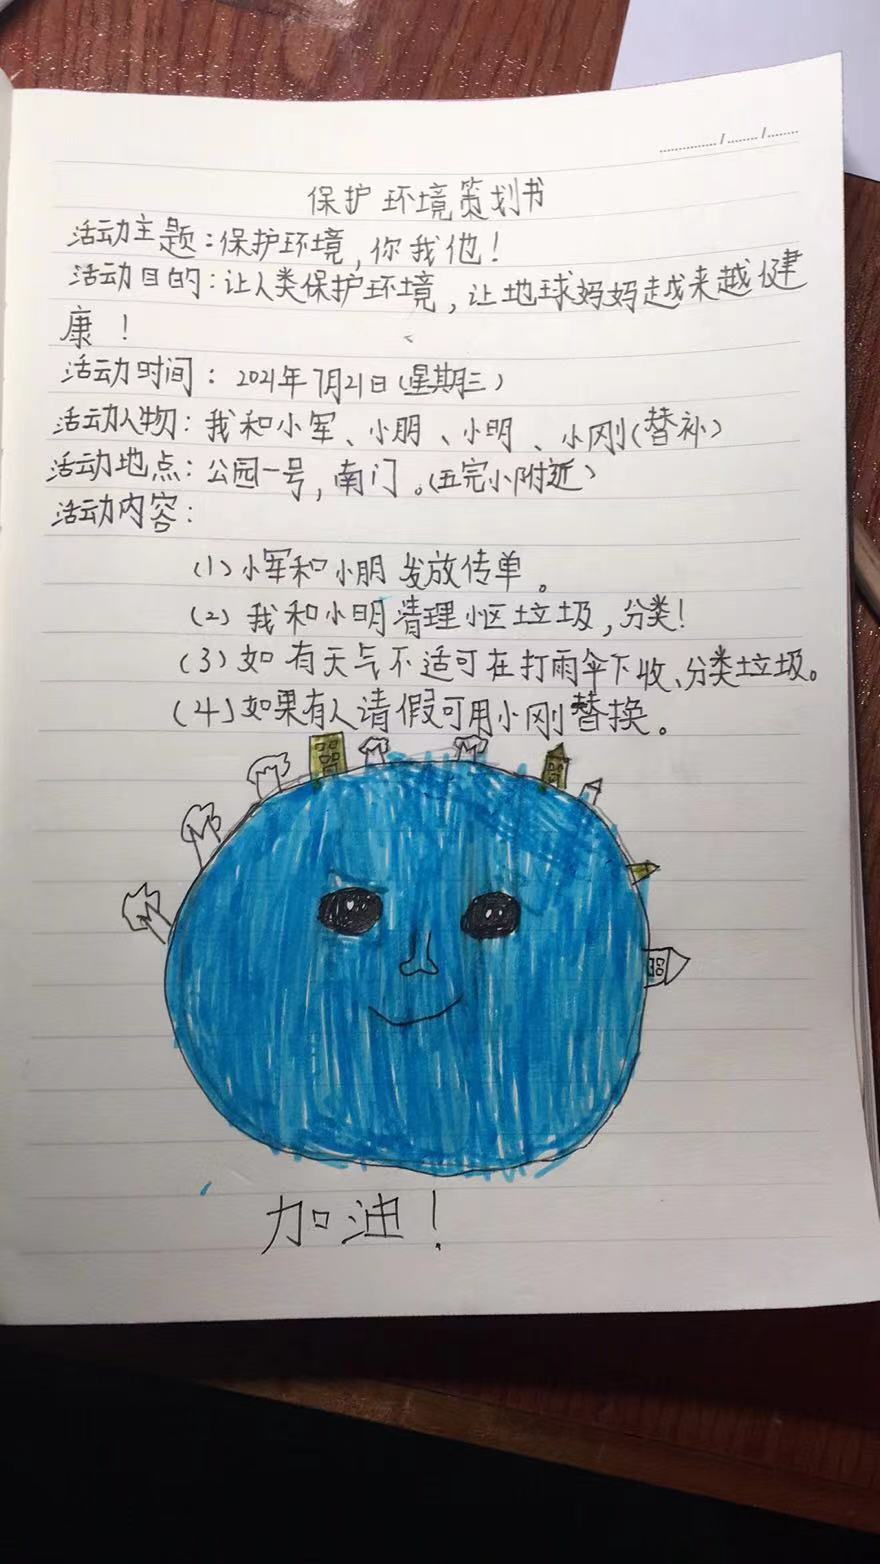 保护环境策划书
活动主题：保护环境，你我他！
活动目的：让人类保护环境，让地球妈妈越来越健
康！
活动时间：2021年7月21日（星期三）
活动人物：我和小军、小朋、小明、小刚（替补）
活动地点：公园一号，南门。（五完小附近）
活动内容：
（1）小军和小朋发放传单。
（2）我和小明清理小区垃圾，分类！
（3）如有天气不适可在打雨伞下收、分类垃圾。
（4）如果有人请假可用小刚替换。
加油！